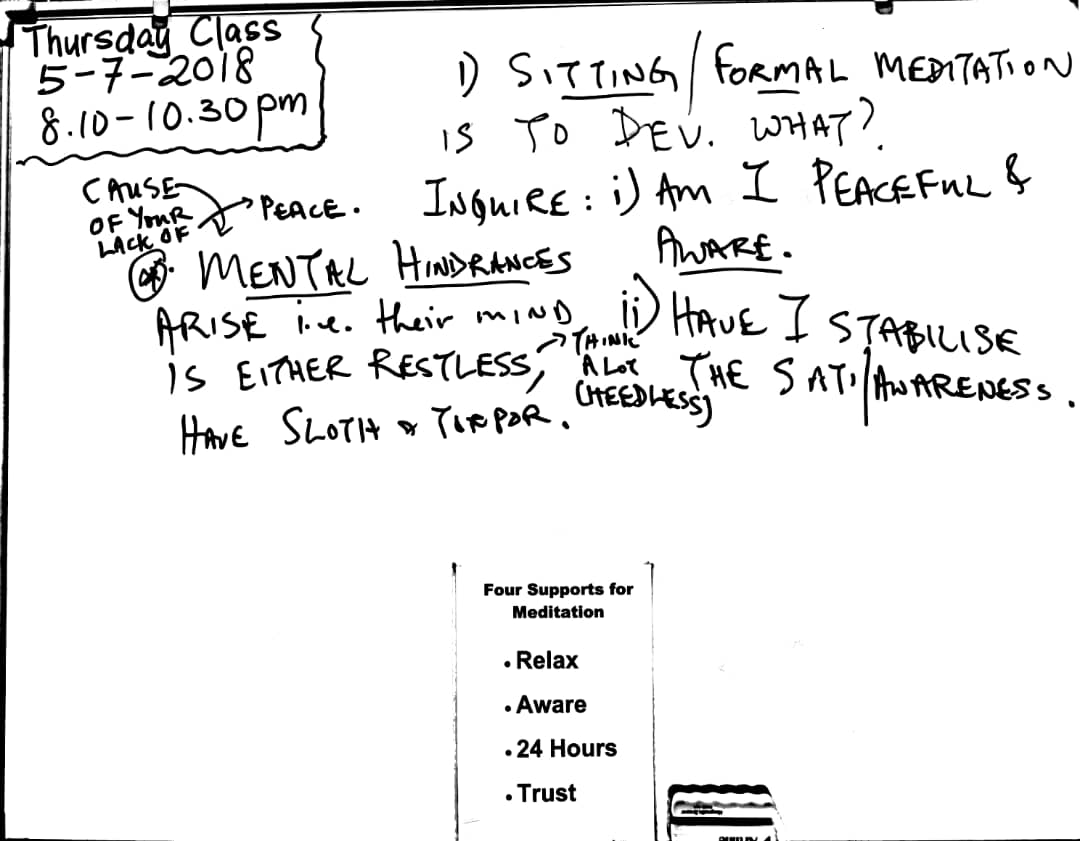 Thursday Class
5-7-2018
8.10-10.30pm
1) SITTING/FORMAL MEDITATION
IS TO DEV. WHAT?
INQUIRE: i) AM I PEACEFUL &
AWARE.
ii) HAVE I STABILISE
THE SATI/AWARENESS.
CAUSE
OF YOUR
LACK OF
PEACE.
MENTAL HINDRANCES
ARISE i.e. their MIND
IS EITHER RESTLESS,
THINK
A LOT
(HEEDLESS)
HAVE SLOTH & TORPOR.
Four Supports for
Meditation
• Relax
• Aware
• 24 Hours
• Trust